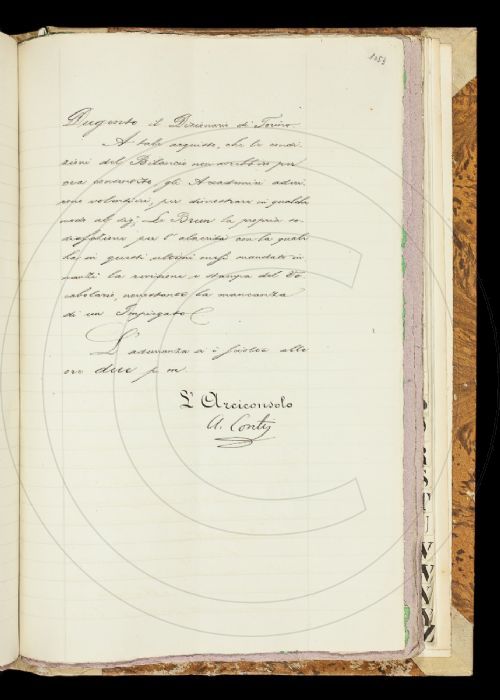 1053
Dugento il Dizionario di Torino.
A tale acquisto, che le condi-
zioni del Bilancio non avrebbero per
ora consentito, gli Accademici aderi-
rono volentieri, per dimostrare in qualche
modo al Sig.r Le Brun la propria so-
disfazione per l'alacrità con la quale
ha in questi ultimi mesi mandato in-
nanzi la revisione e stampa del Vo-
cabolario, nonostante la mancanza
di un Impiegato.
L'adunanza si è sciolta alle
ore due p. m.
L'Arciconsolo
A. Conti
S
T
U
V
Z